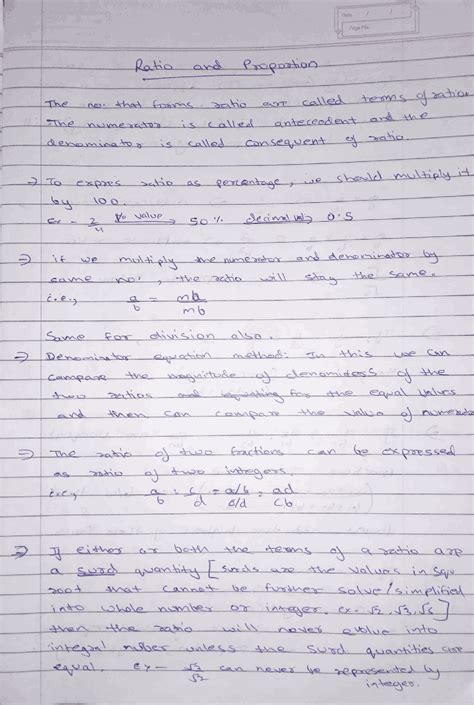 Date / /
Page No.
Ratio and Proportion
The no. that forms ratio are called terms of ratio
The numerator is called antecedent and the
denominator is called consequent of ratio.
→ To expres ratio as percentage, we should multiply it
by 100.
ex - 2/4 % value → 50% decimal val → 0.5
⇒ if we multiply the numerator and denominator by
same no., the ratio will stay the same.
i.e., a/b = ma/mb
Same for division also.
⇒ Denominator equation method: In this we can
compare the magnitude of denomiders of the
two ratios for the equal values
and then can compare the value of numerator
⇒ The ratio of two fractions can be expressed
as ratio of two integers.
i.e., a/b : c/d = a/b / c/d = ad/cb
⇒ If either or both the terms of a ratio are
a surd quantity [surds are the values in squ
root that cannot be further solve/simplified
into whole number or integer. ex - √2, √3, √5]
then the ratio will never evolve into
integral number unless the surd quantities are
equal. ex - √3/√2 can never be represented by
integer.